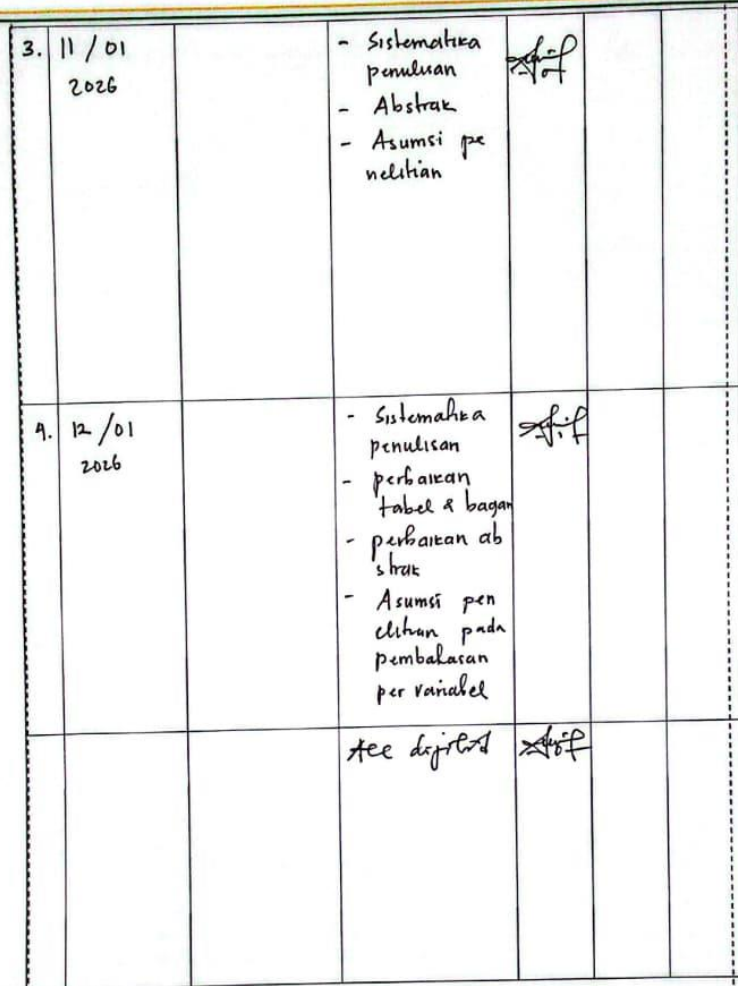 3. 11/01 - Sistematika
2026 penulisan
- Abstrak
- Asumsi pe
nelitian
4. 12/01 - Sistematika
2026 penulisan
- perbaikan
tabel & bagan
- perbaikan ab
strak
- Asumsi pen
elitian pada
pembahasan
per variabel
Acc dijilid